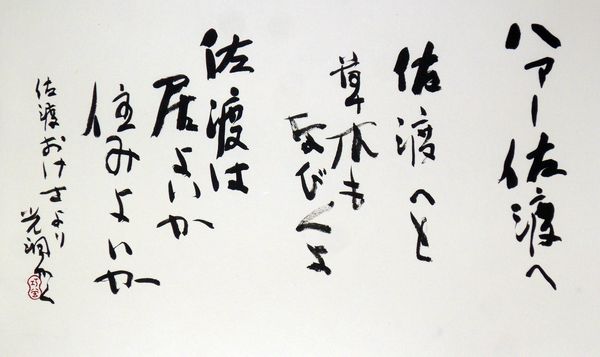 ハアー佐渡へ
佐渡へと
草木も
なびくよ
佐渡は
居よいか
住みよいか
佐渡おけさより